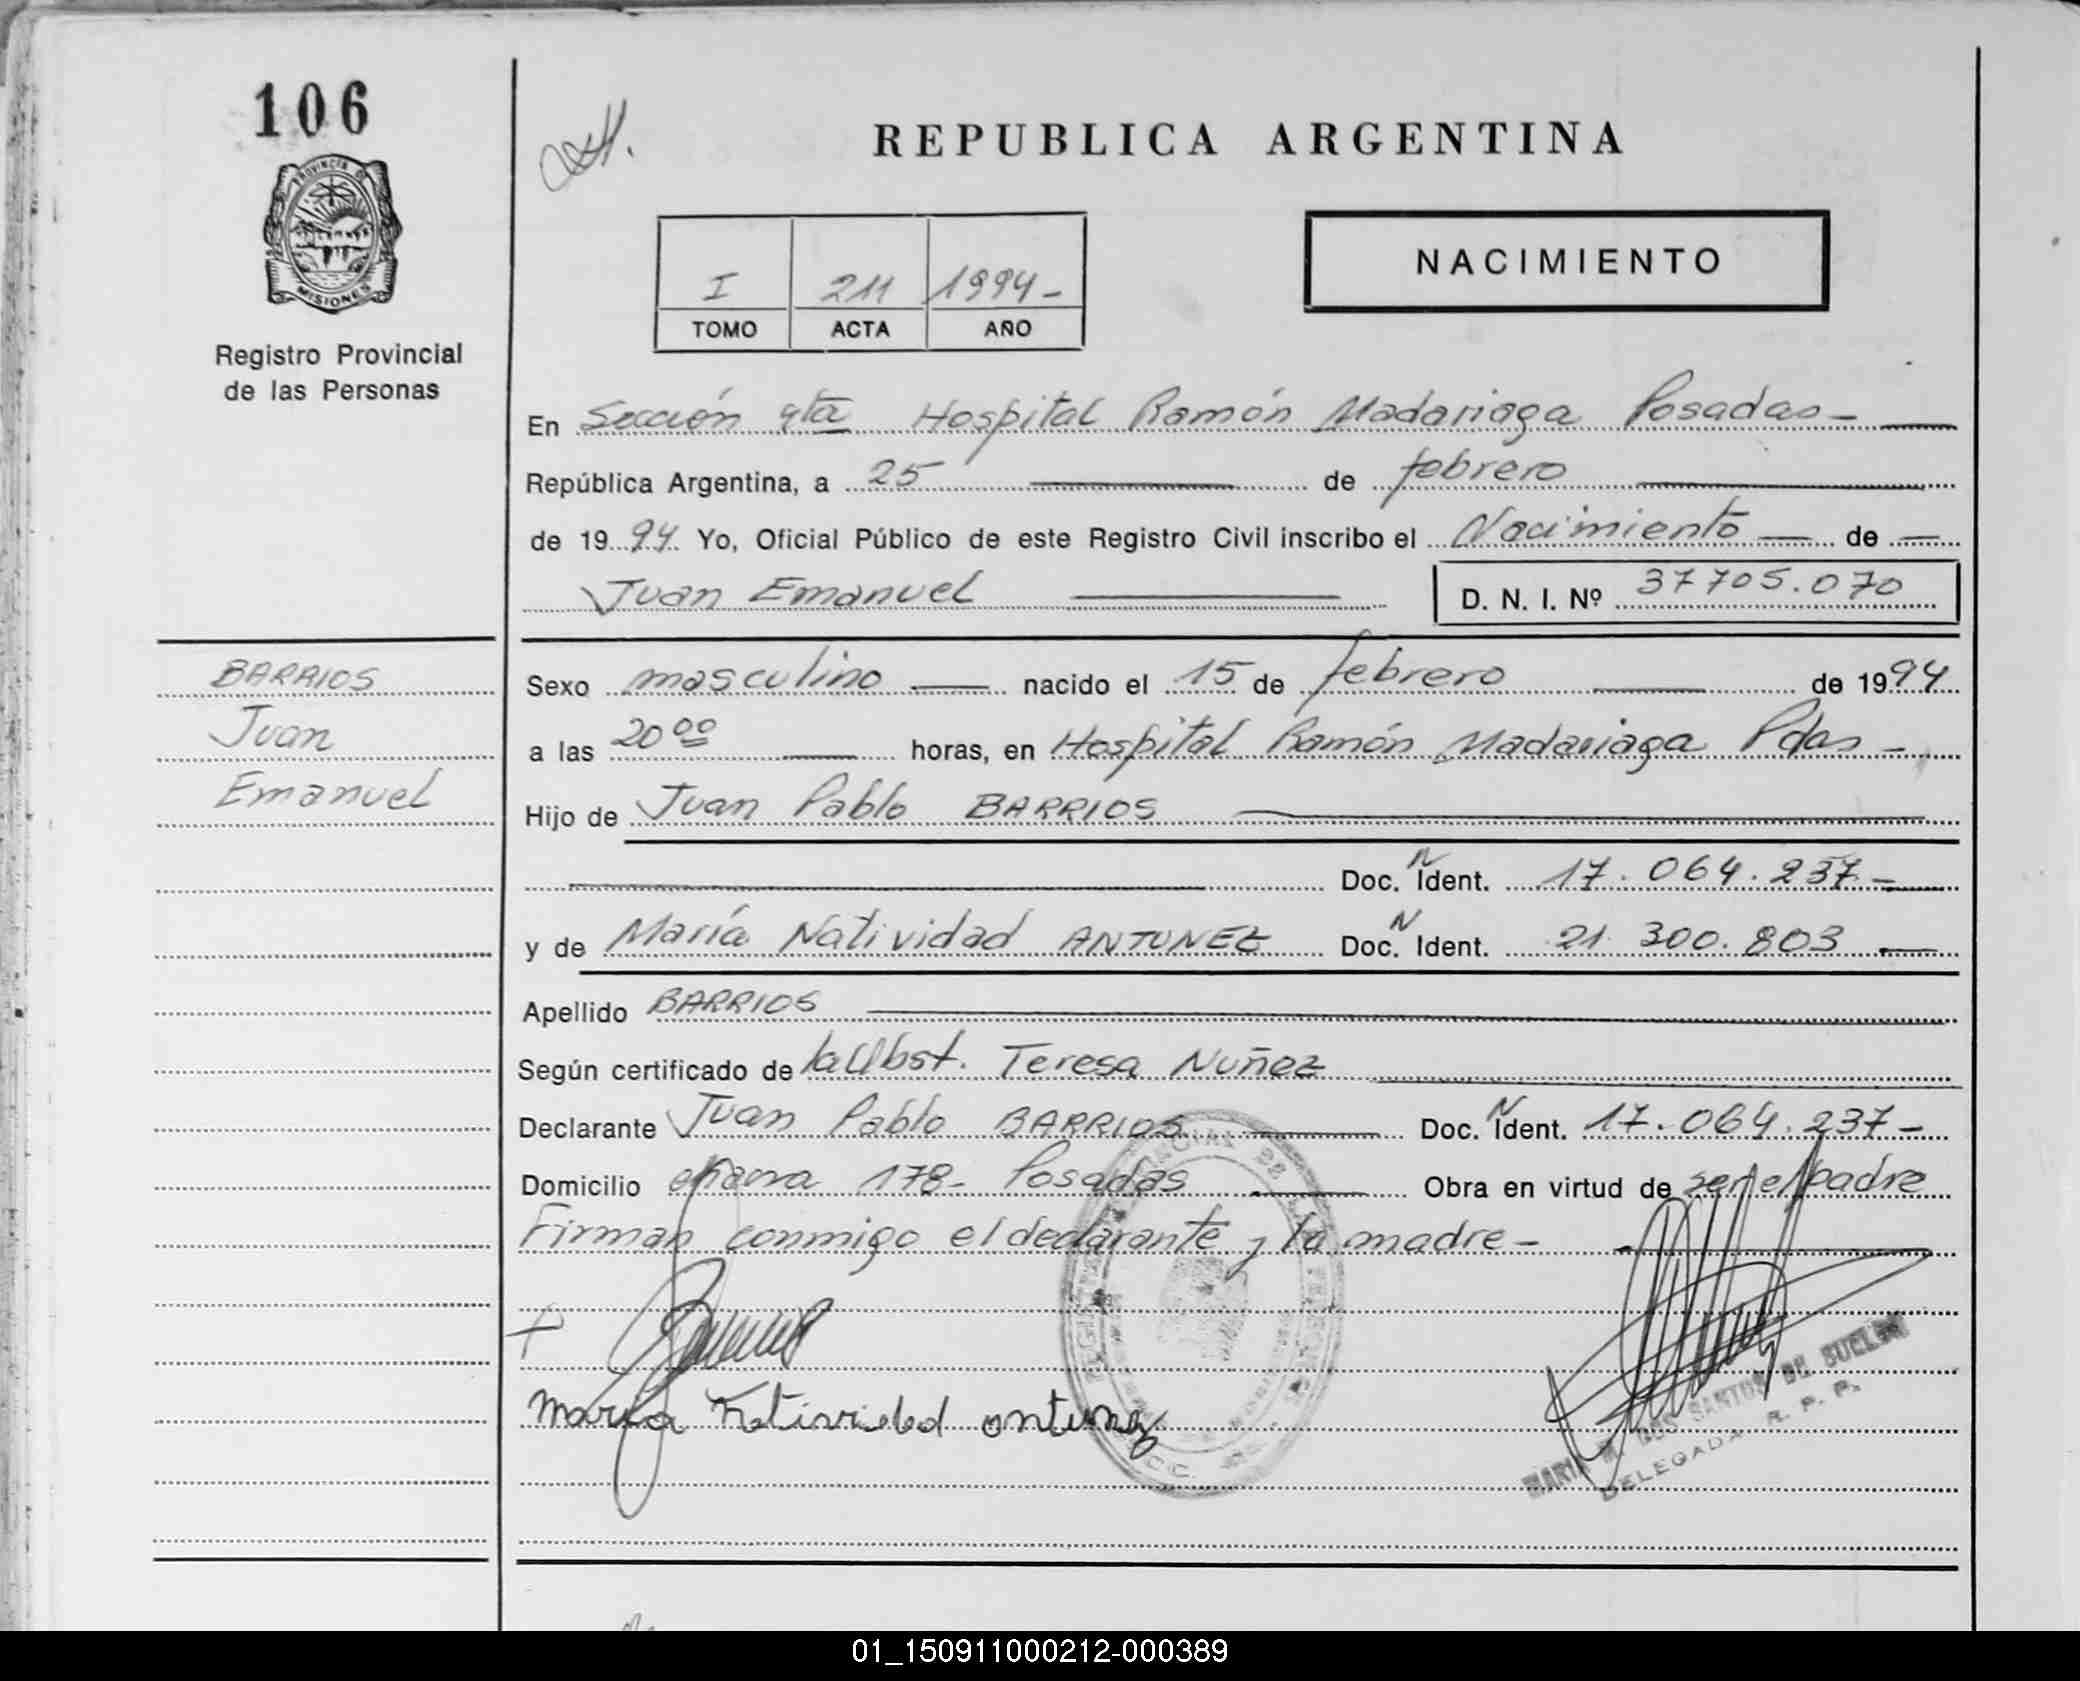 106
PROVINCIA DE
MISIONES
Registro Provincial
de las Personas
REPUBLICA ARGENTINA
NACIMIENTO
I 211 1994-
TOMO ACTA AÑO
En Sección 4ta Hospital Ramón Madariaga Posadas-
República Argentina, a 25 de febrero
de 1994 Yo, Oficial Público de este Registro Civil inscribo el Nacimiento de
Juan Emanuel D. N. I. Nº 37705.070
BARRIOS
Juan
Emanuel
Sexo masculino nacido el 15 de febrero de 1994
a las 20 00 horas, en Hospital Ramón Madariaga Pdas-
Hijo de Juan Pablo BARRIOS
Doc. N Ident. 17.064.237-
y de María Natividad ANTUNEZ Doc. N Ident. 21.300.803
Apellido BARRIOS
Según certificado de la Obst. Teresa Nuñez
Declarante Juan Pablo BARRIOS Doc. N Ident. 17.064.237-
Domicilio chacra 178- Posadas Obra en virtud de ser el padre
Firman conmigo el declarante y la madre-
María Natividad antunez
MARIA DOS SANTOS DE BUELER
DELEGADA R. P. P.
01_150911000212-000389